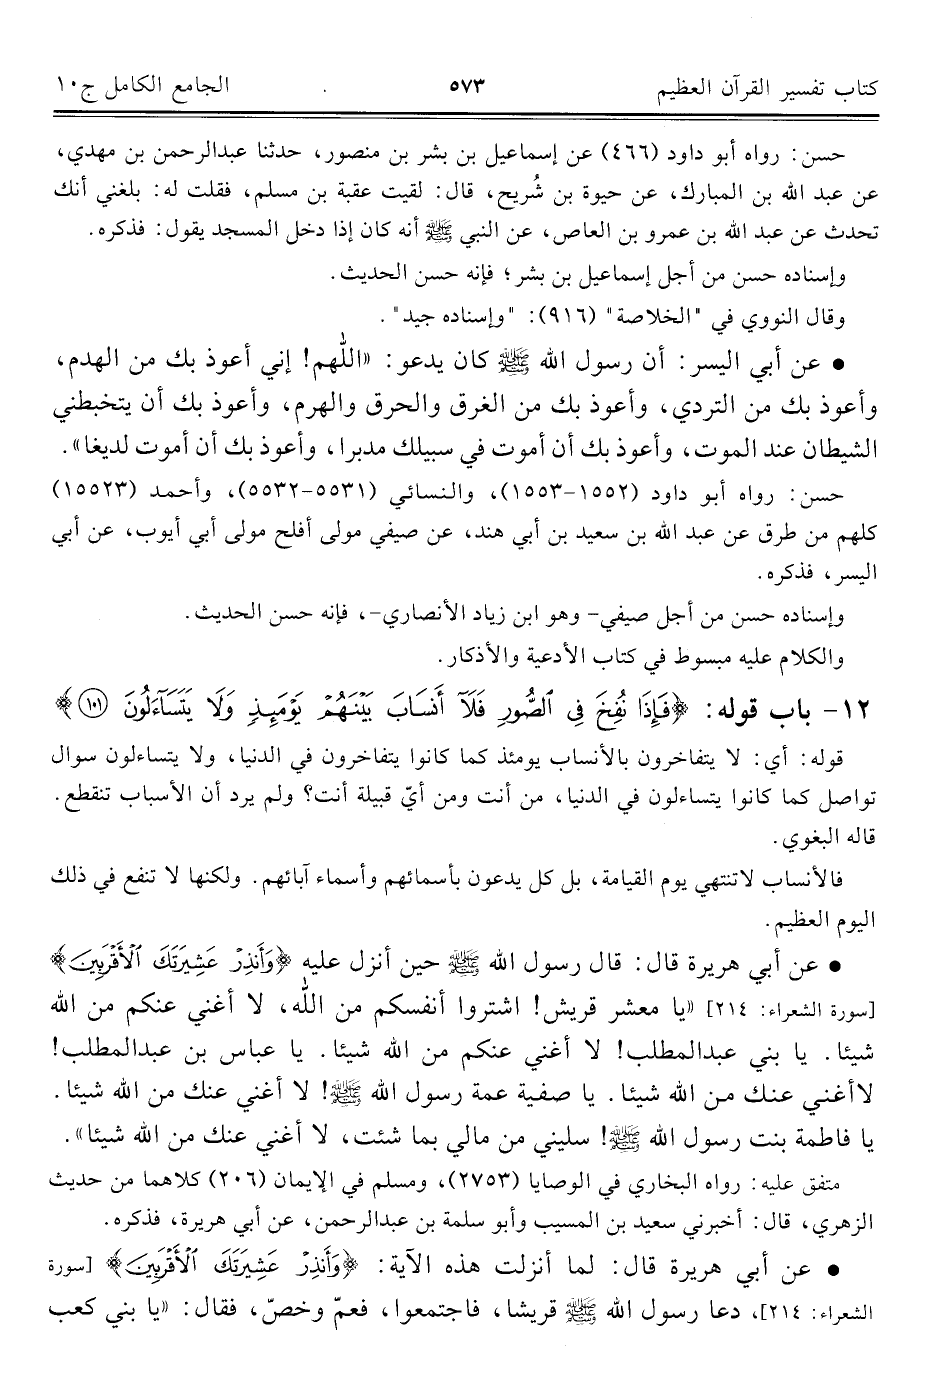 كتاب تفسير القرآن العظيم ٥٧٣ الجامع الكامل ج١٠
حسن: رواه أبو داود (٤٦٦) عن إسماعيل بن بشر بن منصور، حدثنا عبدالرحمن بن مهدي،
عن عبد الله بن المبارك، عن حيوة بن شُريح، قال: لقيت عقبة بن مسلم، فقلت له: بلغني أنك
تحدث عن عبد الله بن عمرو بن العاص، عن النبي ﷺ أنه كان إذا دخل المسجد يقول: فذكره.
وإسناده حسن من أجل إسماعيل بن بشر؛ فإنه حسن الحديث.
وقال النووي في "الخلاصة" (٩١٦): "وإسناده جيد".
● عن أبي اليسر: أن رسول الله ﷺ كان يدعو: «اللهم! إني أعوذ بك من الهدم،
وأعوذ بك من التردي، وأعوذ بك من الغرق والحرق والهرم، وأعوذ بك أن يتخبطني
الشيطان عند الموت، وأعوذ بك أن أموت في سبيلك مدبرا، وأعوذ بك أن أموت لديغا».
حسن: رواه أبو داود (١٥٥٢-١٥٥٣)، والنسائي (٥٥٣١-٥٥٣٢)، وأحمد (١٥٥٢٣)
كلهم من طرق عن عبد الله بن سعيد بن أبي هند، عن صيفي مولى أفلح مولى أبي أيوب، عن أبي
اليسر، فذكره.
وإسناده حسن من أجل صيفي- وهو ابن زياد الأنصاري-، فإنه حسن الحديث.
والكلام عليه مبسوط في كتاب الأدعية والأذكار.
١٢- باب قوله: ﴿فَإِذَا نُفِخَ فِي ٱلصُّورِ فَلَآ أَنسَابَ بَيْنَهُمْ يَوْمَئِذٍ وَلَا يَتَسَآءَلُونَ ١٠١﴾
قوله: أي: لا يتفاخرون بالأنساب يومئذ كما كانوا يتفاخرون في الدنيا، ولا يتساءلون سوال
تواصل كما كانوا يتساءلون في الدنيا، من أنت ومن أيّ قبيلة أنت؟ ولم يرد أن الأسباب تنقطع.
قاله البغوي.
فالأنساب لاتنتهي يوم القيامة، بل كل يدعون بأسمائهم وأسماء آبائهم. ولكنها لا تنفع في ذلك
اليوم العظيم.
● عن أبي هريرة قال: قال رسول الله ﷺ حين أنزل عليه ﴿وَأَنذِرْ عَشِيرَتَكَ ٱلْأَقْرَبِينَ﴾
[سورة الشعراء: ٢١٤] «يا معشر قريش! اشتروا أنفسكم من الله، لا أغني عنكم من الله
شيئا. يا بني عبدالمطلب! لا أغني عنكم من الله شيئا. يا عباس بن عبدالمطلب!
لاأغني عنك من الله شيئا. يا صفية عمة رسول الله ﷺ! لا أغني عنك من الله شيئا.
يا فاطمة بنت رسول الله ﷺ! سليني من مالي بما شئت، لا أغني عنك من الله شيئا».
متفق عليه: رواه البخاري في الوصايا (٢٧٥٣)، ومسلم في الإيمان (٢٠٦) كلاهما من حديث
الزهري، قال: أخبرني سعيد بن المسيب وأبو سلمة بن عبدالرحمن، عن أبي هريرة، فذكره.
● عن أبي هريرة قال: لما أنزلت هذه الآية: ﴿وَأَنذِرْ عَشِيرَتَكَ ٱلْأَقْرَبِينَ﴾ [سورة
الشعراء: ٢١٤]، دعا رسول الله ﷺ قريشا، فاجتمعوا، فعمّ وخصّ، فقال: «يا بني كعب